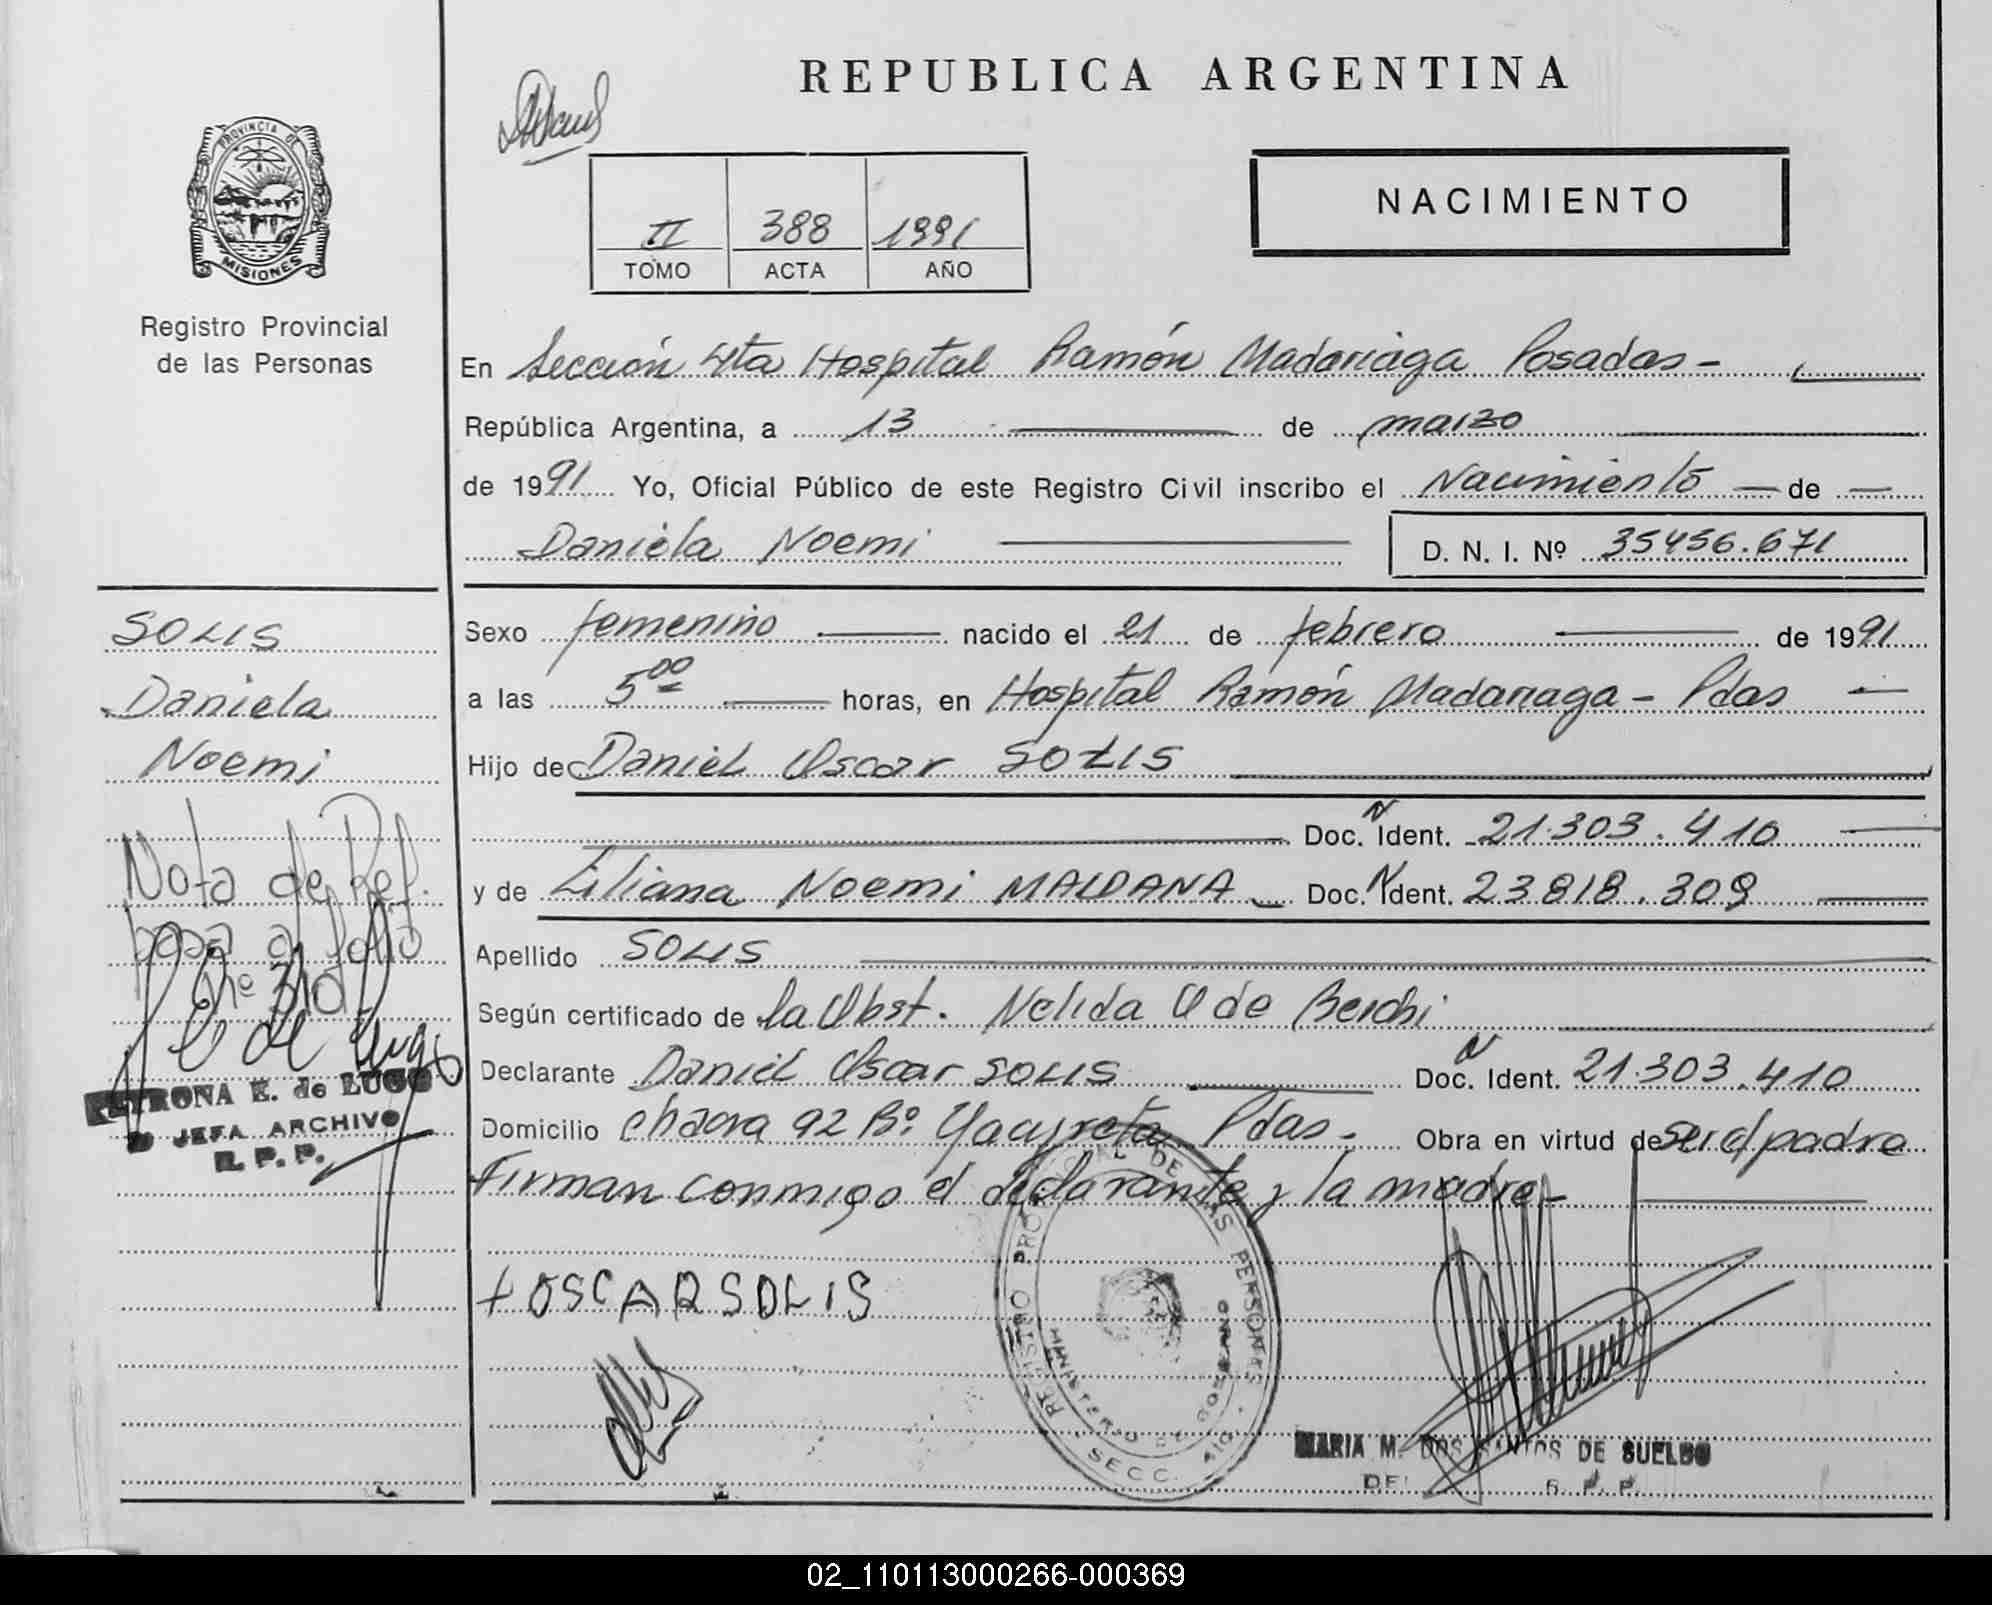 REPUBLICA ARGENTINA
PROVINCIA DE
MISIONES
Registro Provincial
de las Personas
NACIMIENTO
II 388 1991
TOMO ACTA AÑO
En Sección 4ta Hospital Ramón Madariaga Posadas -
República Argentina, a 13 de marzo
de 1991 Yo, Oficial Público de este Registro Civil inscribo el Nacimiento de
Daniela Noemi
D. N. I. Nº 35456.671
SOLIS
Daniela
Noemi
Nota de Ref.
pasa al folio
nº 310
PETRONA E. de LUGO
JEFA ARCHIVO
R. P. P.
Sexo femenino nacido el 21 de febrero de 1991
a las 5 00 horas, en Hospital Ramón Madariaga - Pdas
Hijo de Daniel Oscar SOLIS
Doc. N Ident. 21.303.410
y de Liliana Noemi MALDANA Doc. N Ident. 23818.309
Apellido SOLIS
Según certificado de la Obst. Nelida O de Berchi
Declarante Daniel Oscar SOLIS Doc. N Ident. 21.303.410
Domicilio chacra 92 Bº Yacyreta Pdas. Obra en virtud de ser el padre
Firman conmigo el declarante y la madre
+ OSCAR SOLIS
REGISTRO PROVINCIAL DE LAS PERSONAS
MINISTERIO DE GOBIERNO
SECC.
MARIA M. DOS SANTOS DE SUELDO
R. P. P.
02_110113000266-000369